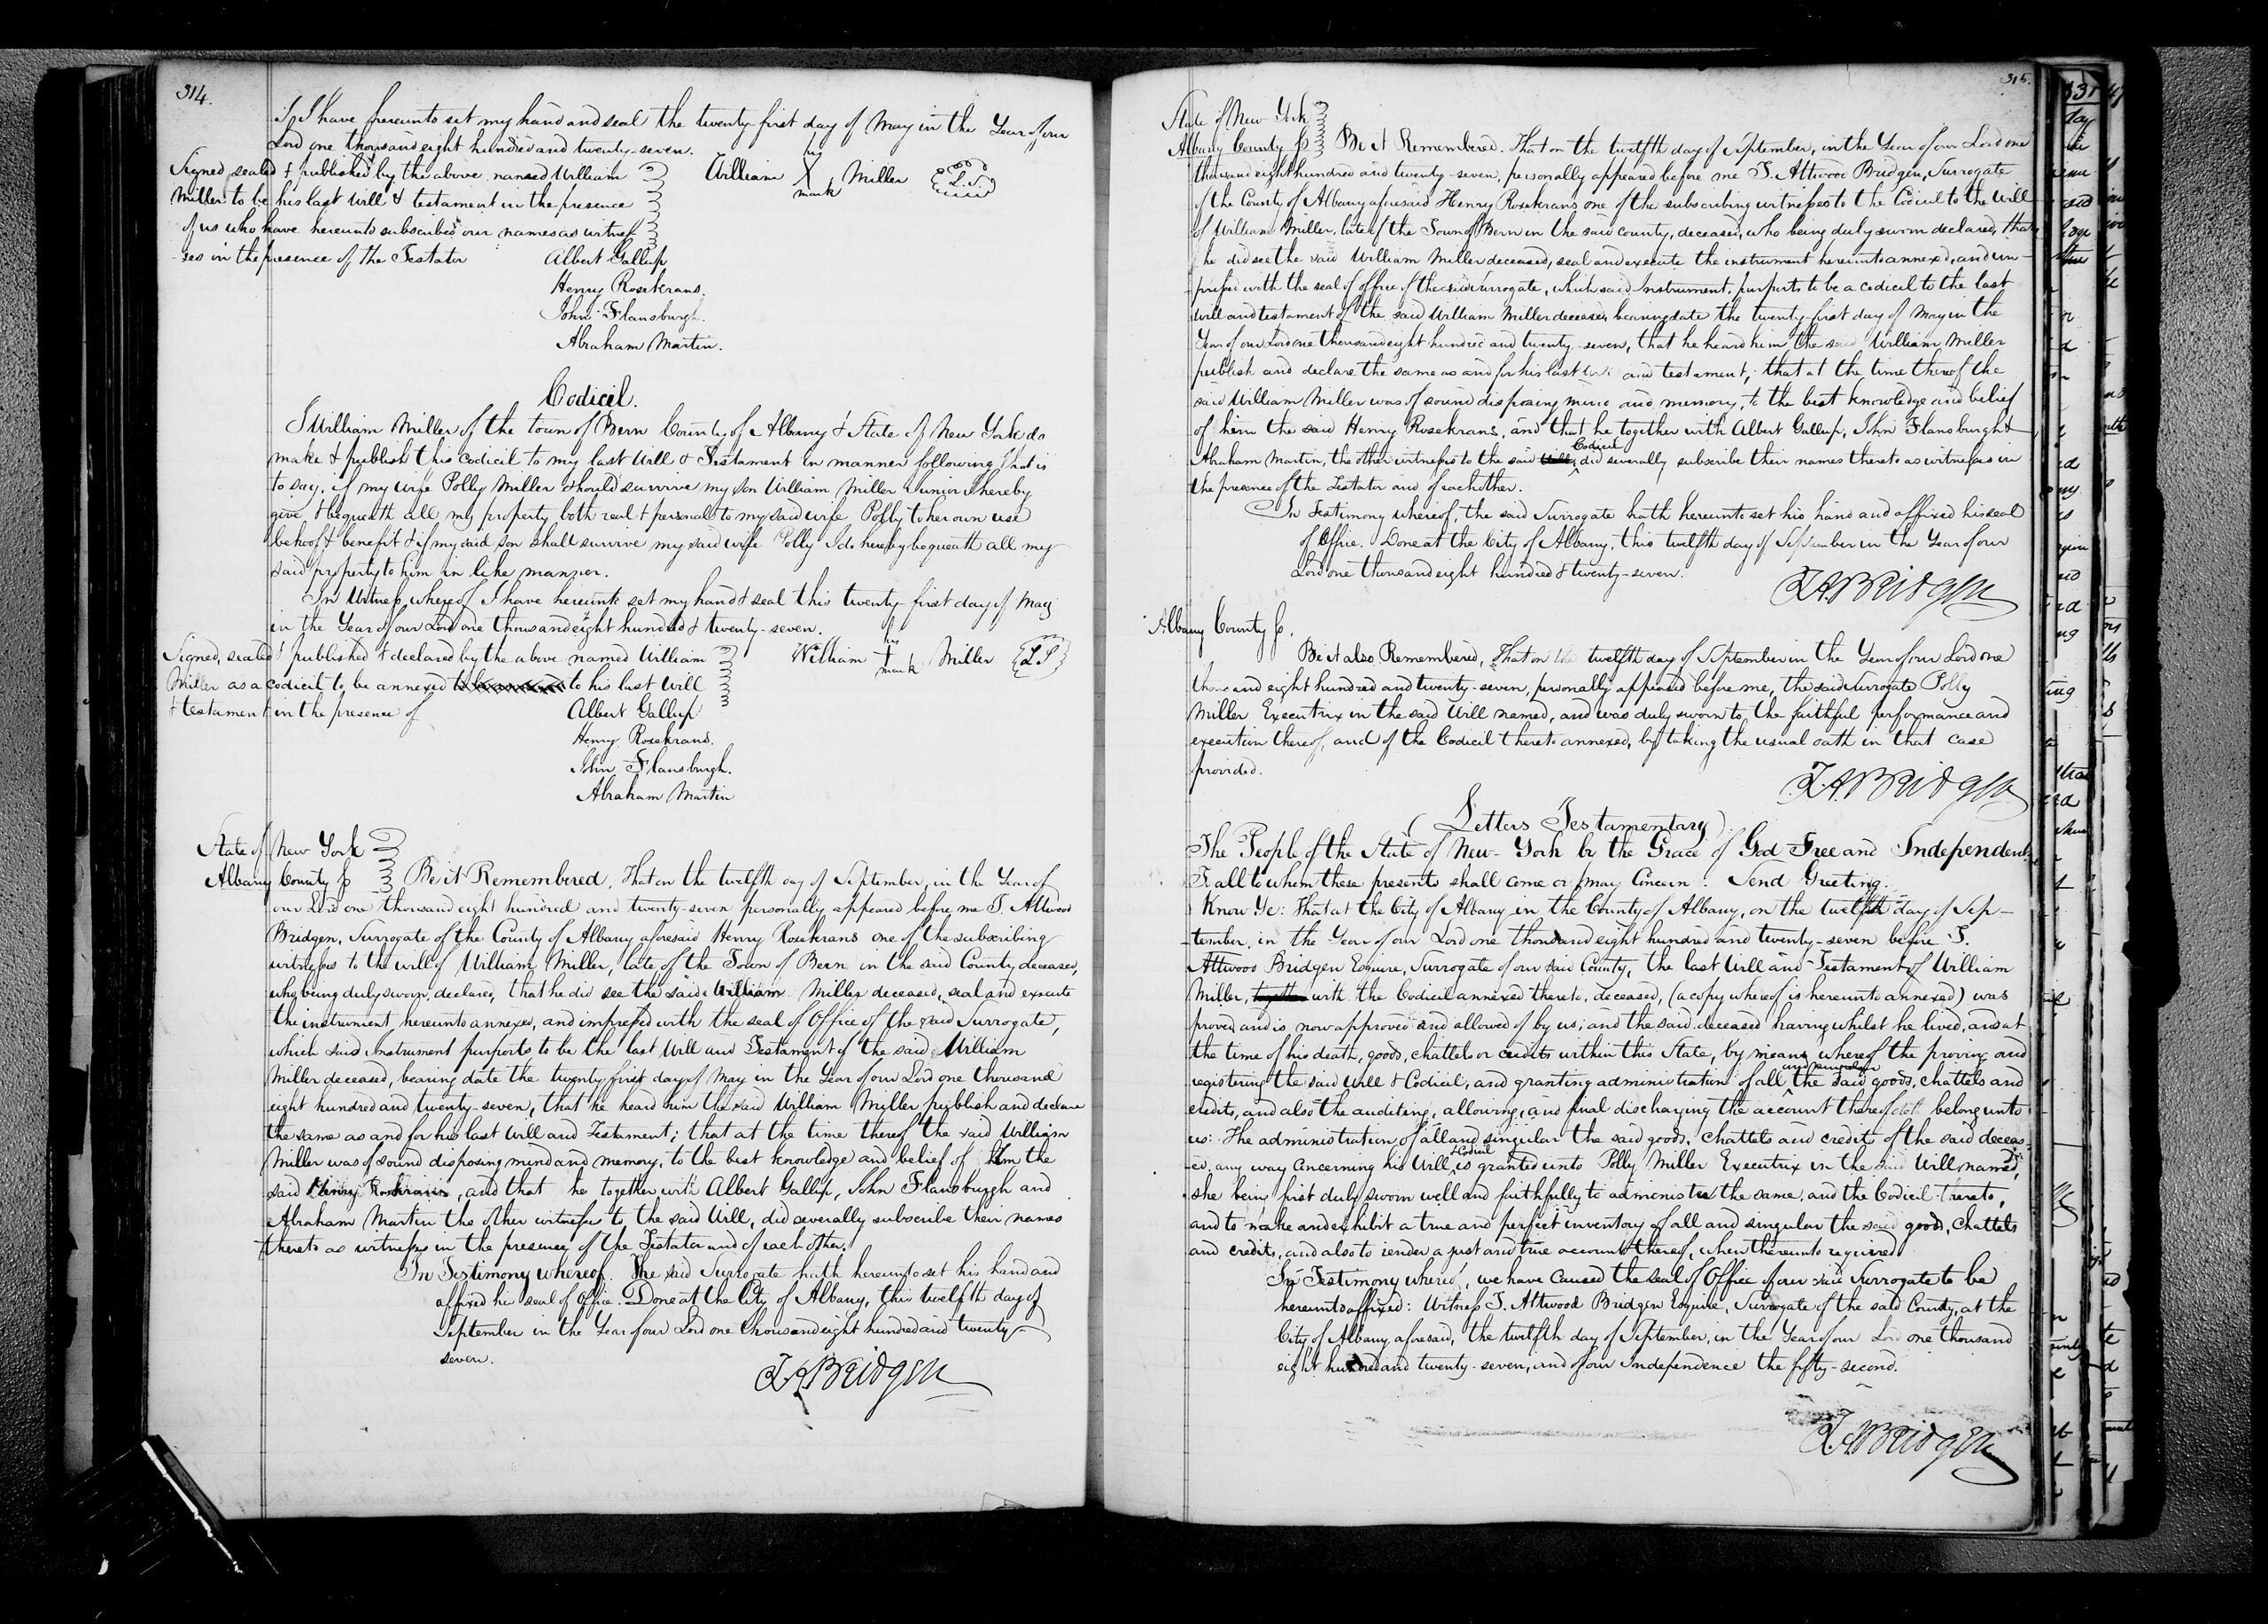 314.
I have hereunto set my hand and seal the twenty-first day of May in the Year of our
Lord one thousand eight hundred and twenty-seven.
Signed sealed & published by the above named William
Miller to be his last Will & testament in the presence
of us who have hereunto subscribed our names as witnes
ses in the presence of the Testator
William his X mark Miller L.S.
Albert Gallup
Henry Rosekrans.
John Flansburgh.
Abraham Martin.
Codicil.
I William Miller of the town of Bern County of Albany & State of New York do
make & publish this codicil to my last Will & Testament in manner following that is
to say, if my wife Polly Miller should survive my son William Miller Junior I hereby
give & bequeath all my property both real & personal to my said wife Polly to her own use
behoof & benefit & if my said son shall survive my said wife Polly I do hereby bequeath all my
said property to him in like manner.
In Witness whereof I have hereunto set my hand & seal this twenty-first day of May
in the Year of our Lord one thousand eight hundred & twenty-seven.
Signed, sealed & published & declared by the above named William
Miller as a codicil to be annexed to be annexed to his last Will
& testament in the presence of
William his + mark Miller L.S
Albert Gallup
Henry Rosekrans.
John Flansburgh.
Abraham Martin
State of New York
Albany County ss Be it Remembered, That on the twelfth day of September, in the Year of
our Lord one thousand eight hundred and twenty-seven personally appeared before me T. Attwood
Bridgen, Surrogate of the County of Albany aforesaid Henry Rosekrans one of the subscribing
witnesses to the will of William Miller, late of the Town of Bern in the said County deceased,
who being duly sworn, declared, that he did see the said William Miller deceased, seal and execute
the instrument, hereunto annexed, and impressed with the seal of Office of the said Surrogate,
which said Instrument purports to be the last Will and Testament of the said William
Miller deceased, bearing date the twenty first day of May in the Year of our Lord one thousand
eight hundred and twenty-seven, that he heard him the said William Miller publish and declare
the same as and for his last Will and Testament; that at the time thereof the said William
Miller was of sound disposing mind and memory, to the best knowledge and belief of him the
said Henry Rosekrans, and that he together with Albert Gallup, John Flansburgh and
Abraham Martin the other witnesses to the said Will, did severally subscribe their names
thereto as witnesses in the presence of the Testator and of each other.
In Testimony whereof. The said Surrogate hath hereunto set his hand and
affixed his seal of Office. Done at the City of Albany, this twelfth day of
September in the Year of our Lord one thousand eight hundred and twenty-
seven.
T.A. Bridgen
315.
State of New York
Albany County ss Be it Remembered. That on the twelfth day of September, in the Year of our Lord one
thousand eight hundred and twenty-seven, personally appeared before me T. Attwood Bridgen, Surrogate
of the County of Albany aforesaid Henry Rosekrans one of the subscribing witnesses to the Codicil to the Will
of William Miller, late of the Town of Bern in the said county, deceased, who being duly sworn declared, that
he did see the said William Miller deceased, seal and execute the instrument hereunto annexed, and im-
-pressed with the seal of office of the said Surrogate, which said Instrument, purports to be a codicil to the last
will and testament of the said William Miller deceased, bearing date the twenty-first day of May in the
Year of our Lord one thousand eight hundred and twenty-seven, that he heard him the said William Miller
publish and declare the same as and for his last Will and testament; that at the time thereof the
said William Miller was of sound disposing mind and memory, to the best knowledge and belief
of him the said Henry Rosekrans, and that he together with Albert Gallup, John Flansburgh &
Abraham Martin, the other witnesses to the said Will Codicil did severally subscribe their names thereto as witnesses in
the presence of the Testator and of each other.
In Testimony whereof, the said Surrogate hath hereunto set his hand and affixed his seal
of Office. Done at the City of Albany, this twelfth day of September in the Year of our
Lord one thousand eight hundred & twenty-seven.
T.A. Bridgen
Albany County ss.
Be it also Remembered, That on the twelfth day of September in the Year of our Lord one
thousand eight hundred and twenty-seven, personally appeared before me, the said Surrogate Polly
Miller Executrix in the said Will named, and was duly sworn to the faithful performance and
execution thereof, and of the Codicil thereto annexed, by taking the usual oath in that case
provided.
T.A. Bridgen
(Letters Testamentary)
The People of the State of New-York by the Grace of God Free and Independent
To all to whom these presents shall come or may Concern: Send Greeting.
Know Ye: That at the City of Albany in the County of Albany, on the twelfth day of Sep-
-tember, in the Year of our Lord one thousand eight hundred and twenty-seven before T.
Attwood Bridgen Esquire, Surrogate of our said County, the last Will and Testament of William
Miller, together with the Codicil annexed thereto, deceased, (a copy whereof is hereunto annexed) was
proved and is now approved and allowed of by us; and the said deceased having whilst he lived, and at
the time of his death, goods, chattels or credits within this State, by means whereof the proving and
registering the said Will & Codicil, and granting administration of all and singular the said goods, chattels and
credits, and also the auditing, allowing, and final discharging the account thereof doth belong unto
us: The administration of all and singular the said goods, chattels and credits of the said deceas-
-ed, any way Concerning his Will & Codicil is granted unto Polly Miller Executrix in the said Will named,
she being first duly sworn well and faithfully to administer the same, and the Codicil thereto,
and to make and exhibit a true and perfect inventory of all and singular the said goods, chattels
and credits, and also to render a just and true account thereof, when thereunto required.
In Testimony whereof, we have caused the seal of Office of our said Surrogate to be
hereunto affixed: Witness T. Attwood Bridgen Esquire, Surrogate of the said County, at the
City of Albany aforesaid, the twelfth day of September, in the Year of our Lord one thousand
eight hundred and twenty-seven, and of our Independence the fifty-second.
T.A. Bridgen